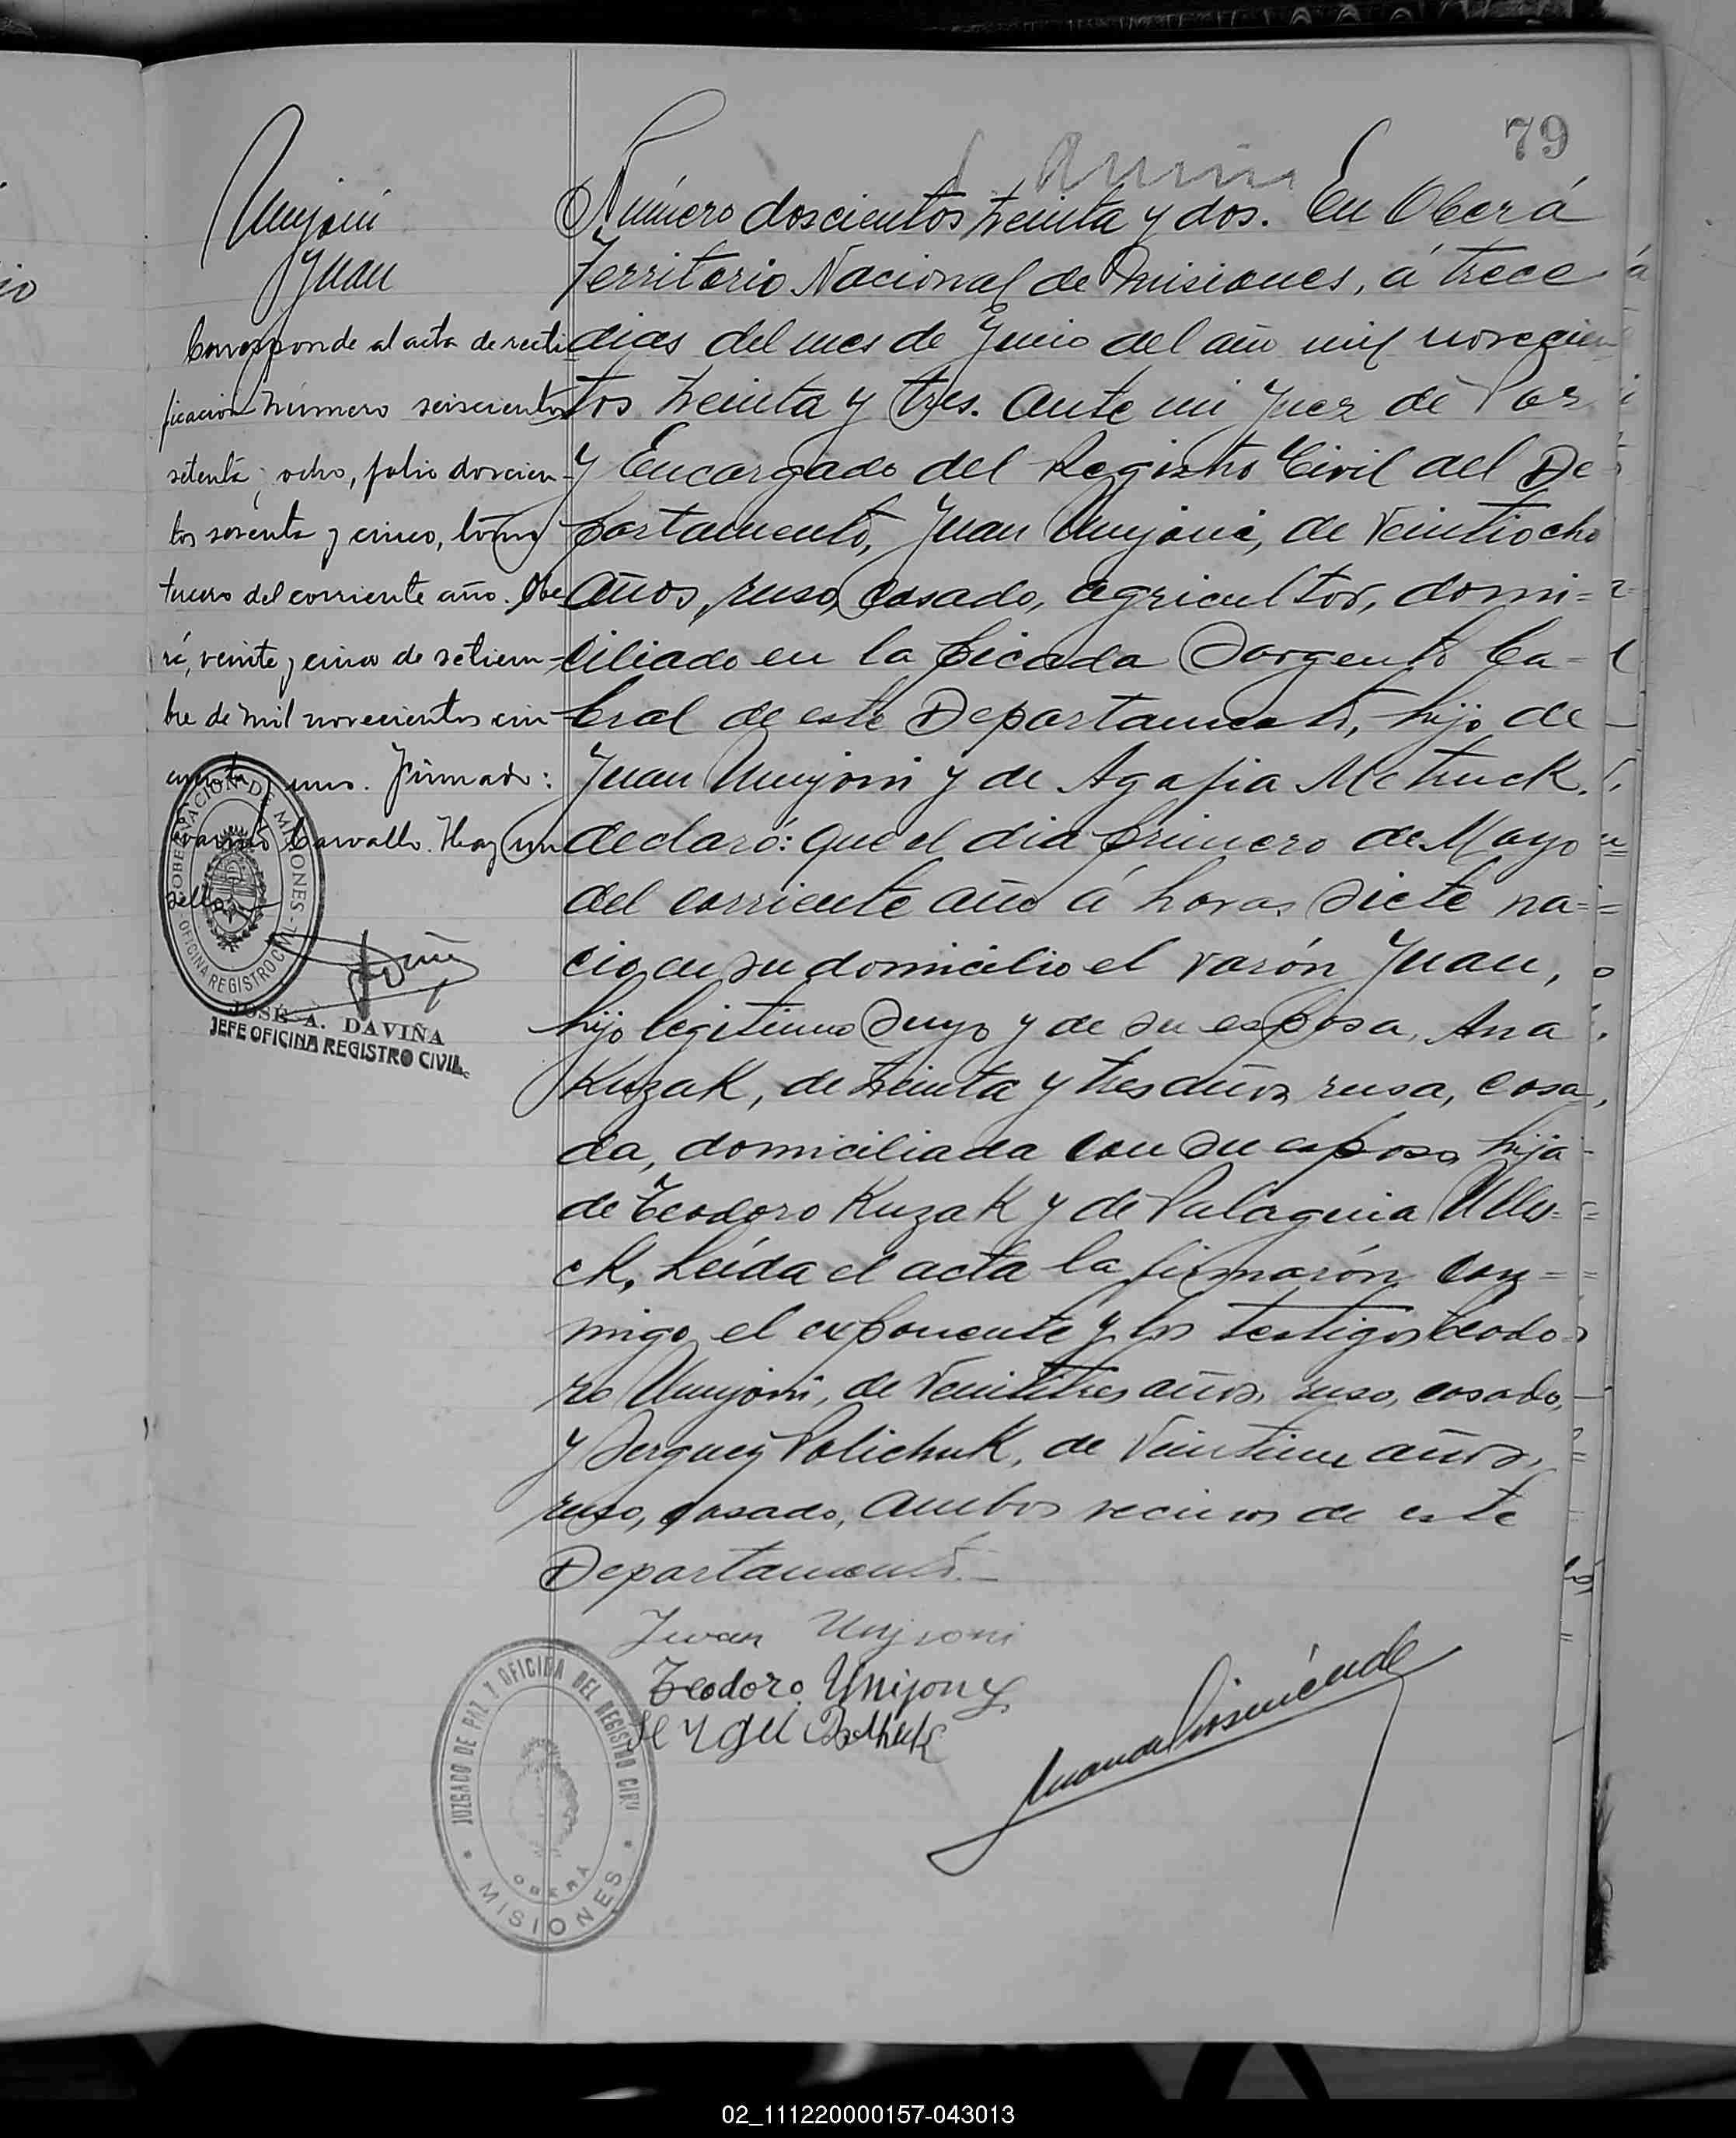 79
Unijoni
Juan
Corresponde al acta de recti
ficación número seiscientos
setenta y ocho, folio doscien-
tos sesenta y cinco, tomo
tercero del corriente año. Obe-
rá, veinte y cinco de setiem-
bre de mil novecientos cin
cuenta y uno. Firmado:
Carvallo. Hay un
sello
GOBERNACION DE MISIONES
OFICINA REGISTRO CIVIL
JOSÉ A. DAVIÑA
JEFE OFICINA REGISTRO CIVIL
Número doscientos treinta y dos. En Oberá
Territorio Nacional de Misiones, á trece
dias del mes de Junio del año mil novecien
tos treinta y tres. Ante mi Juez de Paz
y Encargado del Registro Civil del De
partamento, Juan Unijoni, de veintiocho
años, ruso, casado, agricultor, domi=
ciliado en la picada Sargento Ca=
bral de este Departamento, hijo de
Juan Unijoni y de Agafia Metruck.
declaró: que el dia primero de Mayo
del corriente año á horas siete na=
cio, en su domicilio el varón Juan,
hijo legitimo suyo y de su esposa, Ana
Kuzak, de treinta y tres años, rusa, casa
da, domiciliada con su esposo, hija
de Teodoro Kuzak y de Palaguia
ck, Leída el acta la firmarón con=
migo, el exponente y los testigos Teodo=
ro Unijoni, de veintitres años, ruso, casado,
y Serguey Polichuk, de veintiun años,
ruso, casado, ambos vecinos de este
Departamento.-
Juan Unijoni
Teodoro Unijony
Sergei
JUZGADO DE PAZ Y OFICINA DEL REGISTRO CIVIL
OBERÁ
MISIONES
02_111220000157-043013